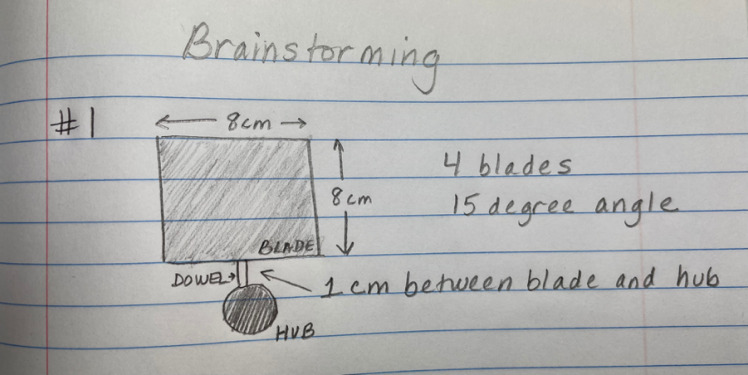 Brainstorming
#1
8cm
4 blades
8cm
15 degree angle
BLADE
DOWEL
1 cm between blade and hub
HUB